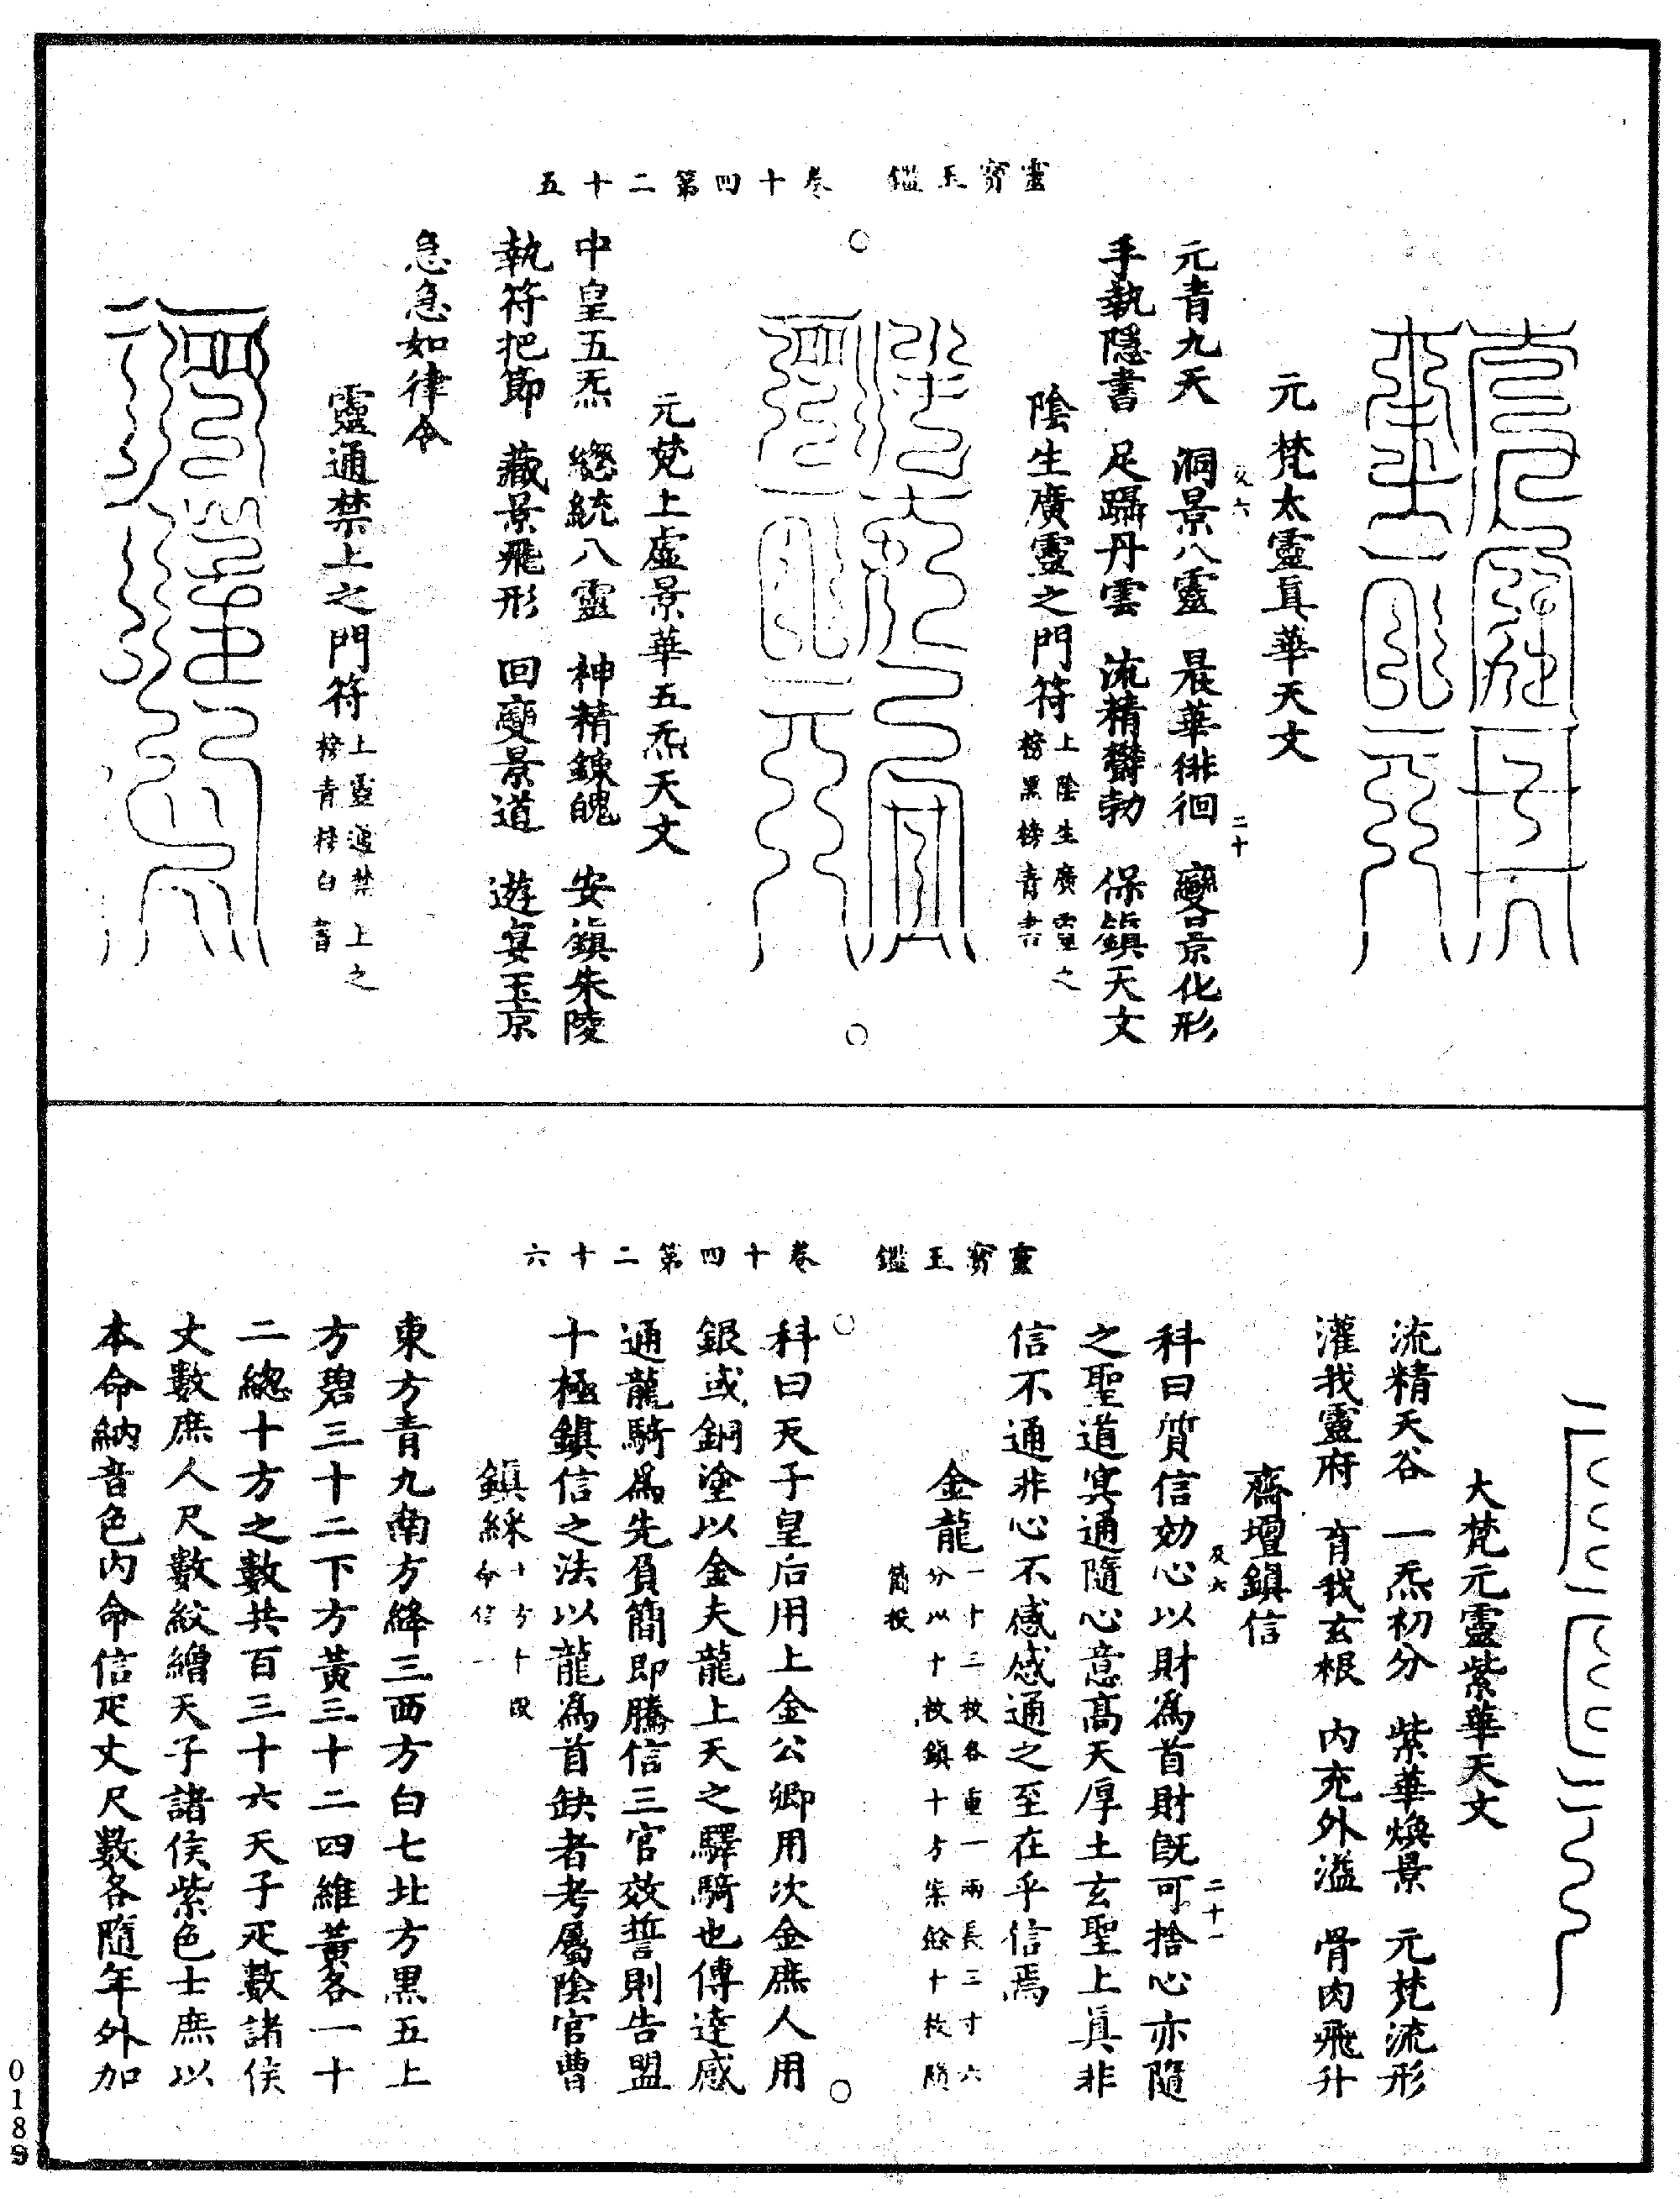 靈寶玉鑑　卷十四第二十五
元梵太靈真華天文
及六
二十
元青九天　洞景八靈　晨華徘徊　變景化形
手執隱書　足躡丹雲　流精欝勃　保鎮天文
陰生廣靈之門符
上陰生廣靈之
榜黑榜青書
元梵上虛景華五炁天文
中皇五炁　總統八靈　神精鍊魄　安鎮朱陵
執符把節　藏景飛形　回變景道　遊宴玉京
急急如律令
靈通禁上之門符
上靈通禁上之
榜青榜白書
靈寶玉鑑　卷十四第二十六
大梵元靈紫華天文
流精天谷　一炁初分　紫華煥景　元梵流形
灌我靈府　育我玄根　內充外溢　骨肉飛升
齋壇鎮信
及六
二十一
科曰質信効心以財為首財既可捨心亦隨
之聖道冥通隨心意高天厚土玄聖上真非
信不通非心不感感通之至在乎信焉
金龍
一十三枚各重一兩長三寸六
分以十枚鎮十方案餘十枚隨
簡投
科曰天子皇后用上金公卿用次金庶人用
銀或銅塗以金夫龍上天之驛騎也傳達感
通龍騎為先負簡即騰信三官效誓則告盟
十極鎮信之法以龍為首缺者考屬陰官曹
鎮綵
十方十段
命信一
東方青九南方絳三西方白七北方黑五上
方碧三十二下方黃三十二四維黃各一十
二總十方之數共百三十六天子疋數諸侯
丈數庶人尺數紋繒天子諸侯紫色士庶以
本命納音色內命信疋丈尺數各隨年外加
0189